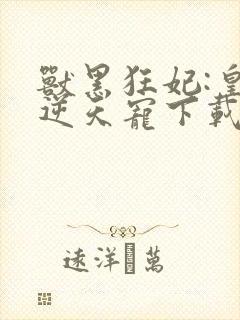 獸黑狂妃:皇
逆天寵下載
遠洋 萬